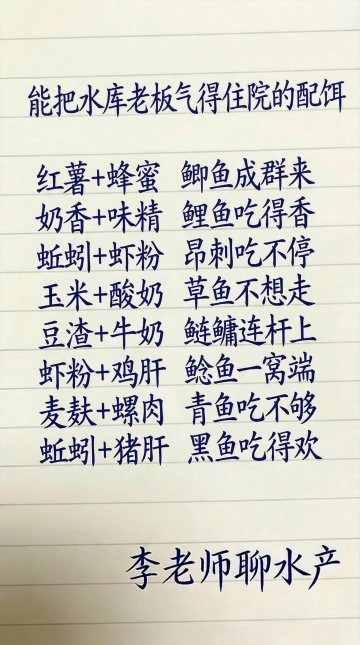 能把水库老板气得住院的配饵
红薯+蜂蜜 鲫鱼成群来
奶香+味精 鲤鱼吃得香
蚯蚓+虾粉 昂刺吃不停
玉米+酸奶 草鱼不想走
豆渣+牛奶 鲢鳙连杆上
虾粉+鸡肝 鲶鱼一窝端
麦麸+螺肉 青鱼吃不够
蚯蚓+猪肝 黑鱼吃得欢
李老师聊水产